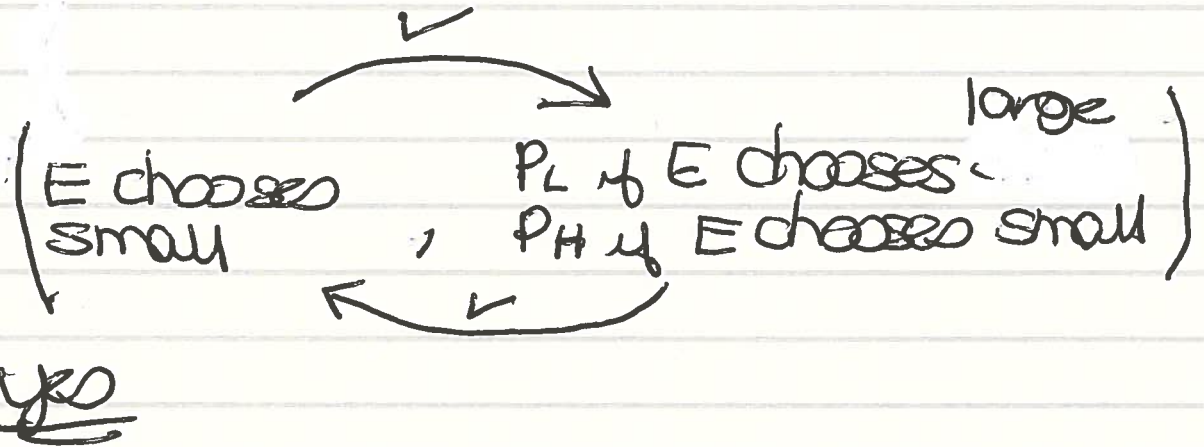 (E chooses small, P_L if E chooses large
P_H if E chooses small)
yes